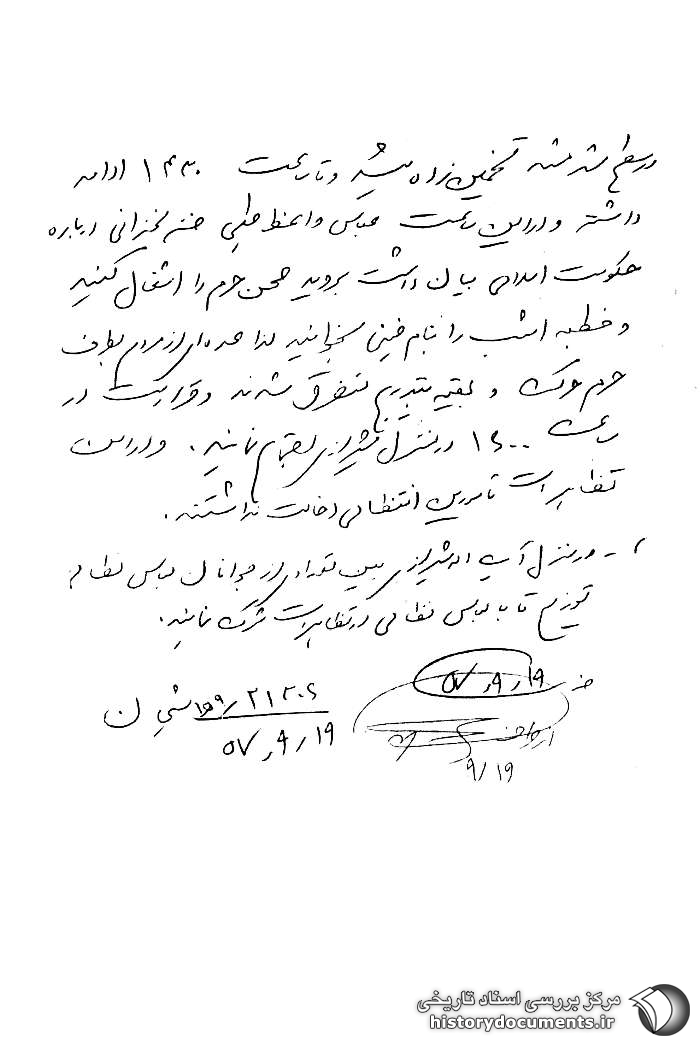 در سطح شهر مشهد تخمین زده میشد و تا ساعت ۱۴۳۰ ادامه
داشته و در این ساعت عباس واعظ طبسی ضمن سخنرانی درباره
حکومت اسلامی بیان داشت بروید صحن حرم را اشغال کنید
و خطبه امشب را بنام خمینی بخوانید لذا عده‌ای از مردم بطرف
حرم حرکت و بقیه بتدریج متفرق شدند و قرار است در
ساعت ۱۶۰۰ در منزل شیرازی اجتماع نمایند. و در این
تظاهرات مأمورین انتظامی دخالت نداشتند.
۲ - در منزل آیت اله شیرازی بین تعدادی از جوانان لباس نظامی
توزیع تا با لباس نظامی در تظاهرات شرکت نمایند.
۵۷٫۹٫۱۹
۹/۱۹
۲۱۳۰۶
۵۷٫۹٫۱۹
مرکز بررسی اسناد تاریخی
historydocuments.ir